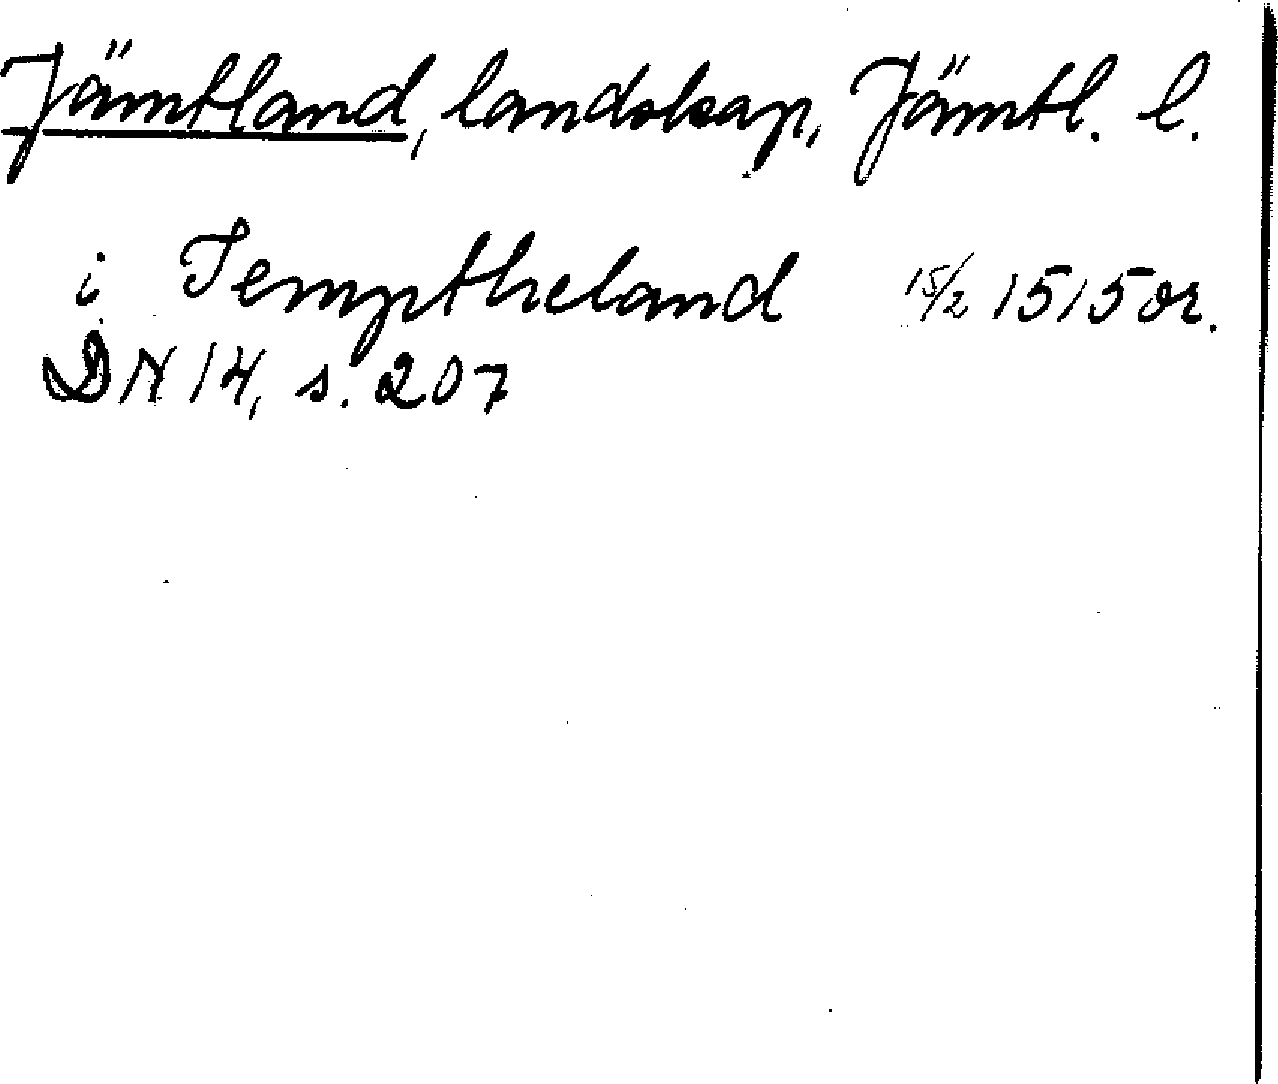 Jämtland, landskap, Jämtl. l.
i Temptheland 15/2 1515 or.
DN 14, s. 207